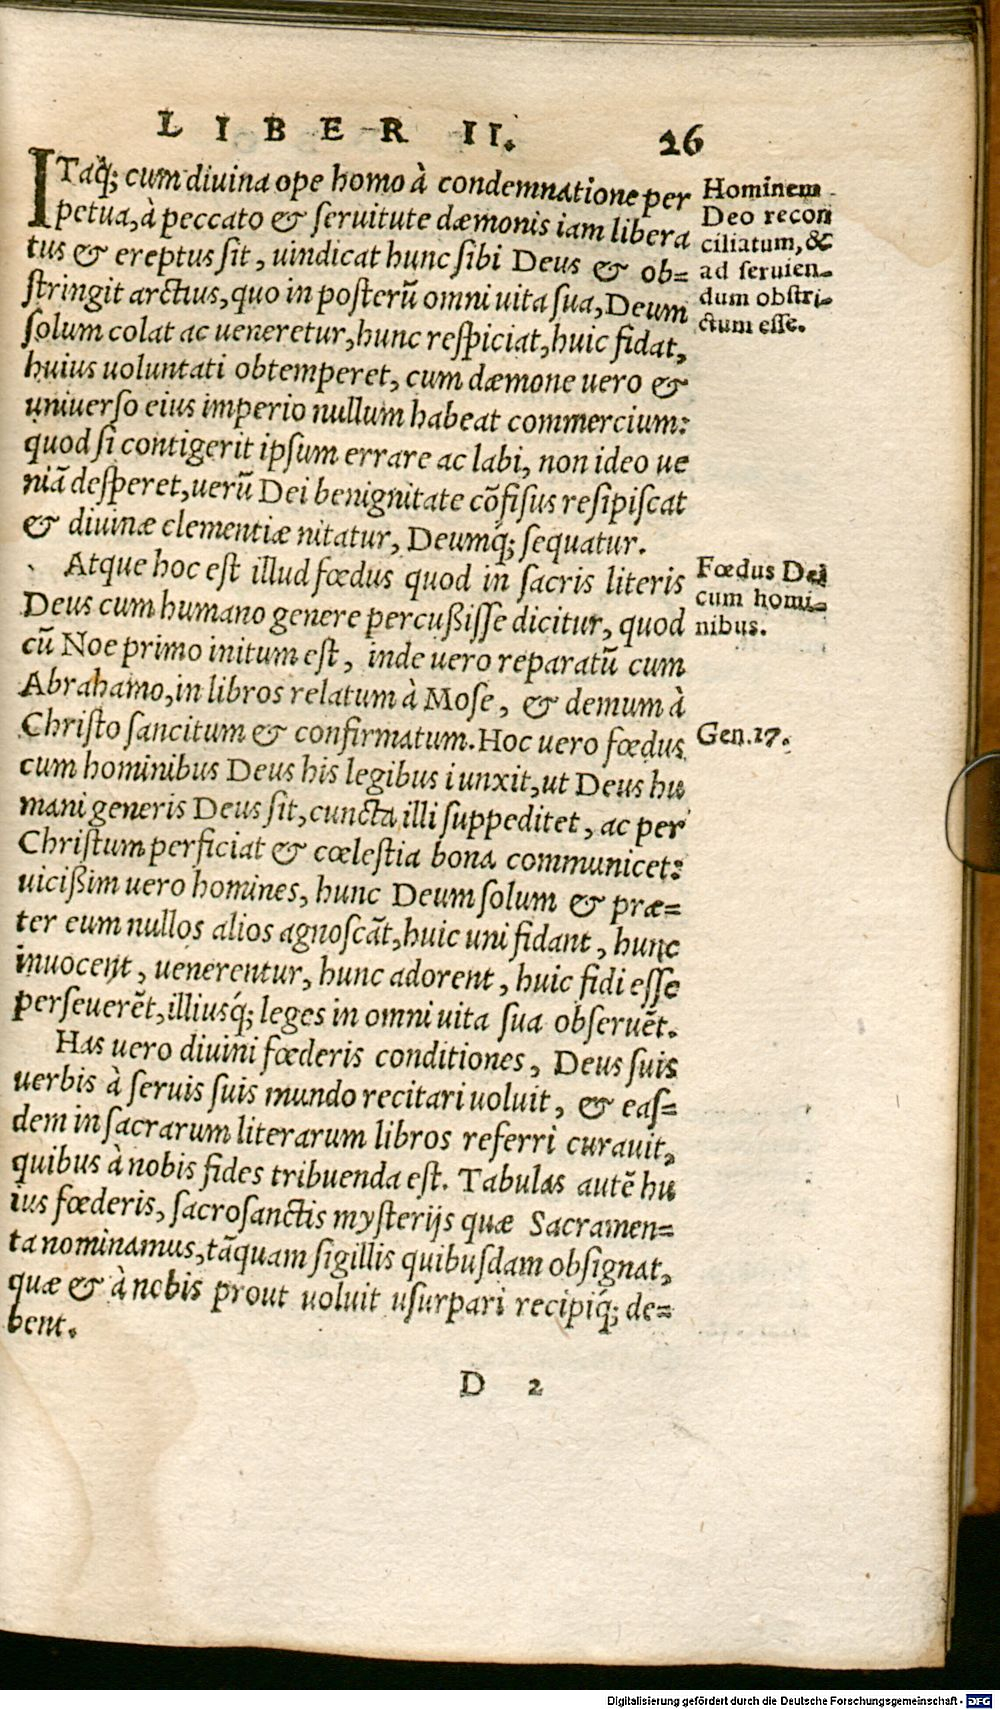 LIBER II. 26
ITaq́; cum diuina ope homo à condemnatione per
petua, à peccato & seruitute dæmonis iam libera
tus & ereptus sit, uindicat hunc sibi Deus & ob=
stringit arctius, quo in posterū omni uita sua, Deum
solum colat ac ueneretur, hunc respiciat, huic fidat,
huius uoluntati obtemperet, cum dæmone uero &
uniuerso eius imperio nullum habeat commercium:
quod si contigerit ipsum errare ac labi, non ideo ue
niā desperet, uerū Dei benignitate cōfisus resipiscat
& diuinæ clementiæ nitatur, Deumq́; sequatur.
Atque hoc est illud fœdus quod in sacris literis
Deus cum humano genere percußisse dicitur, quod
cū Noe primo initum est, inde uero reparatū cum
Abrahamo, in libros relatum à Mose, & demum à
Christo sancitum & confirmatum. Hoc uero fœdus
cum hominibus Deus his legibus iunxit, ut Deus hu
mani generis Deus sit, cuncta illi suppeditet, ac per
Christum perficiat & cœlestia bona communicet:
uicißim uero homines, hunc Deum solum & præ=
ter eum nullos alios agnoscāt, huic uni fidant, hunc
inuocent, uenerentur, hunc adorent, huic fidi esse
perseuerēt, illiusq́; leges in omni uita sua obseruēt.
Has uero diuini fœderis conditiones, Deus suis
uerbis à seruis suis mundo recitari uoluit, & eas=
dem in sacrarum literarum libros referri curauit,
quibus à nobis fides tribuenda est. Tabulas autē hu
ius fœderis, sacrosanctis mysterijs quæ Sacramen=
ta nominamus, tāquam sigillis quibusdam obsignat,
quæ & à nobis prout uoluit usurpari recipiq́; de=
bent.
D 2
Hominem
Deo recon
ciliatum, &
ad seruien=
dum obstri=
ctum esse.
Fœdus Dei
cum homi=
nibus.
Gen. 17.
Digitalisierung gefördert durch die Deutsche Forschungsgemeinschaft - DFG